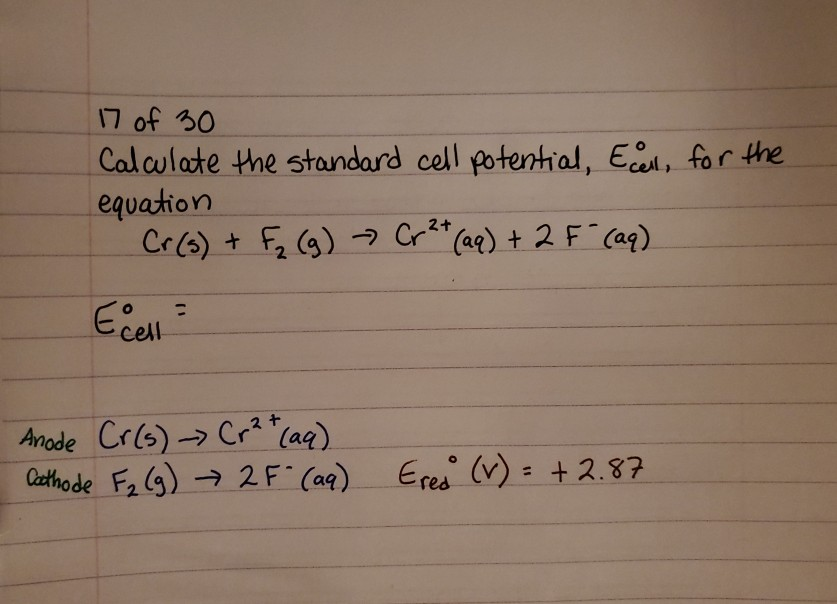 17 of 30
Calculate the standard cell potential, E°cell, for the
equation
Cr(s) + F₂(g) → Cr²⁺(aq) + 2 F⁻(aq)
E°cell =
Anode Cr(s) → Cr²⁺(aq)
Cathode F₂(g) → 2F⁻(aq) Ered°(V) = +2.87